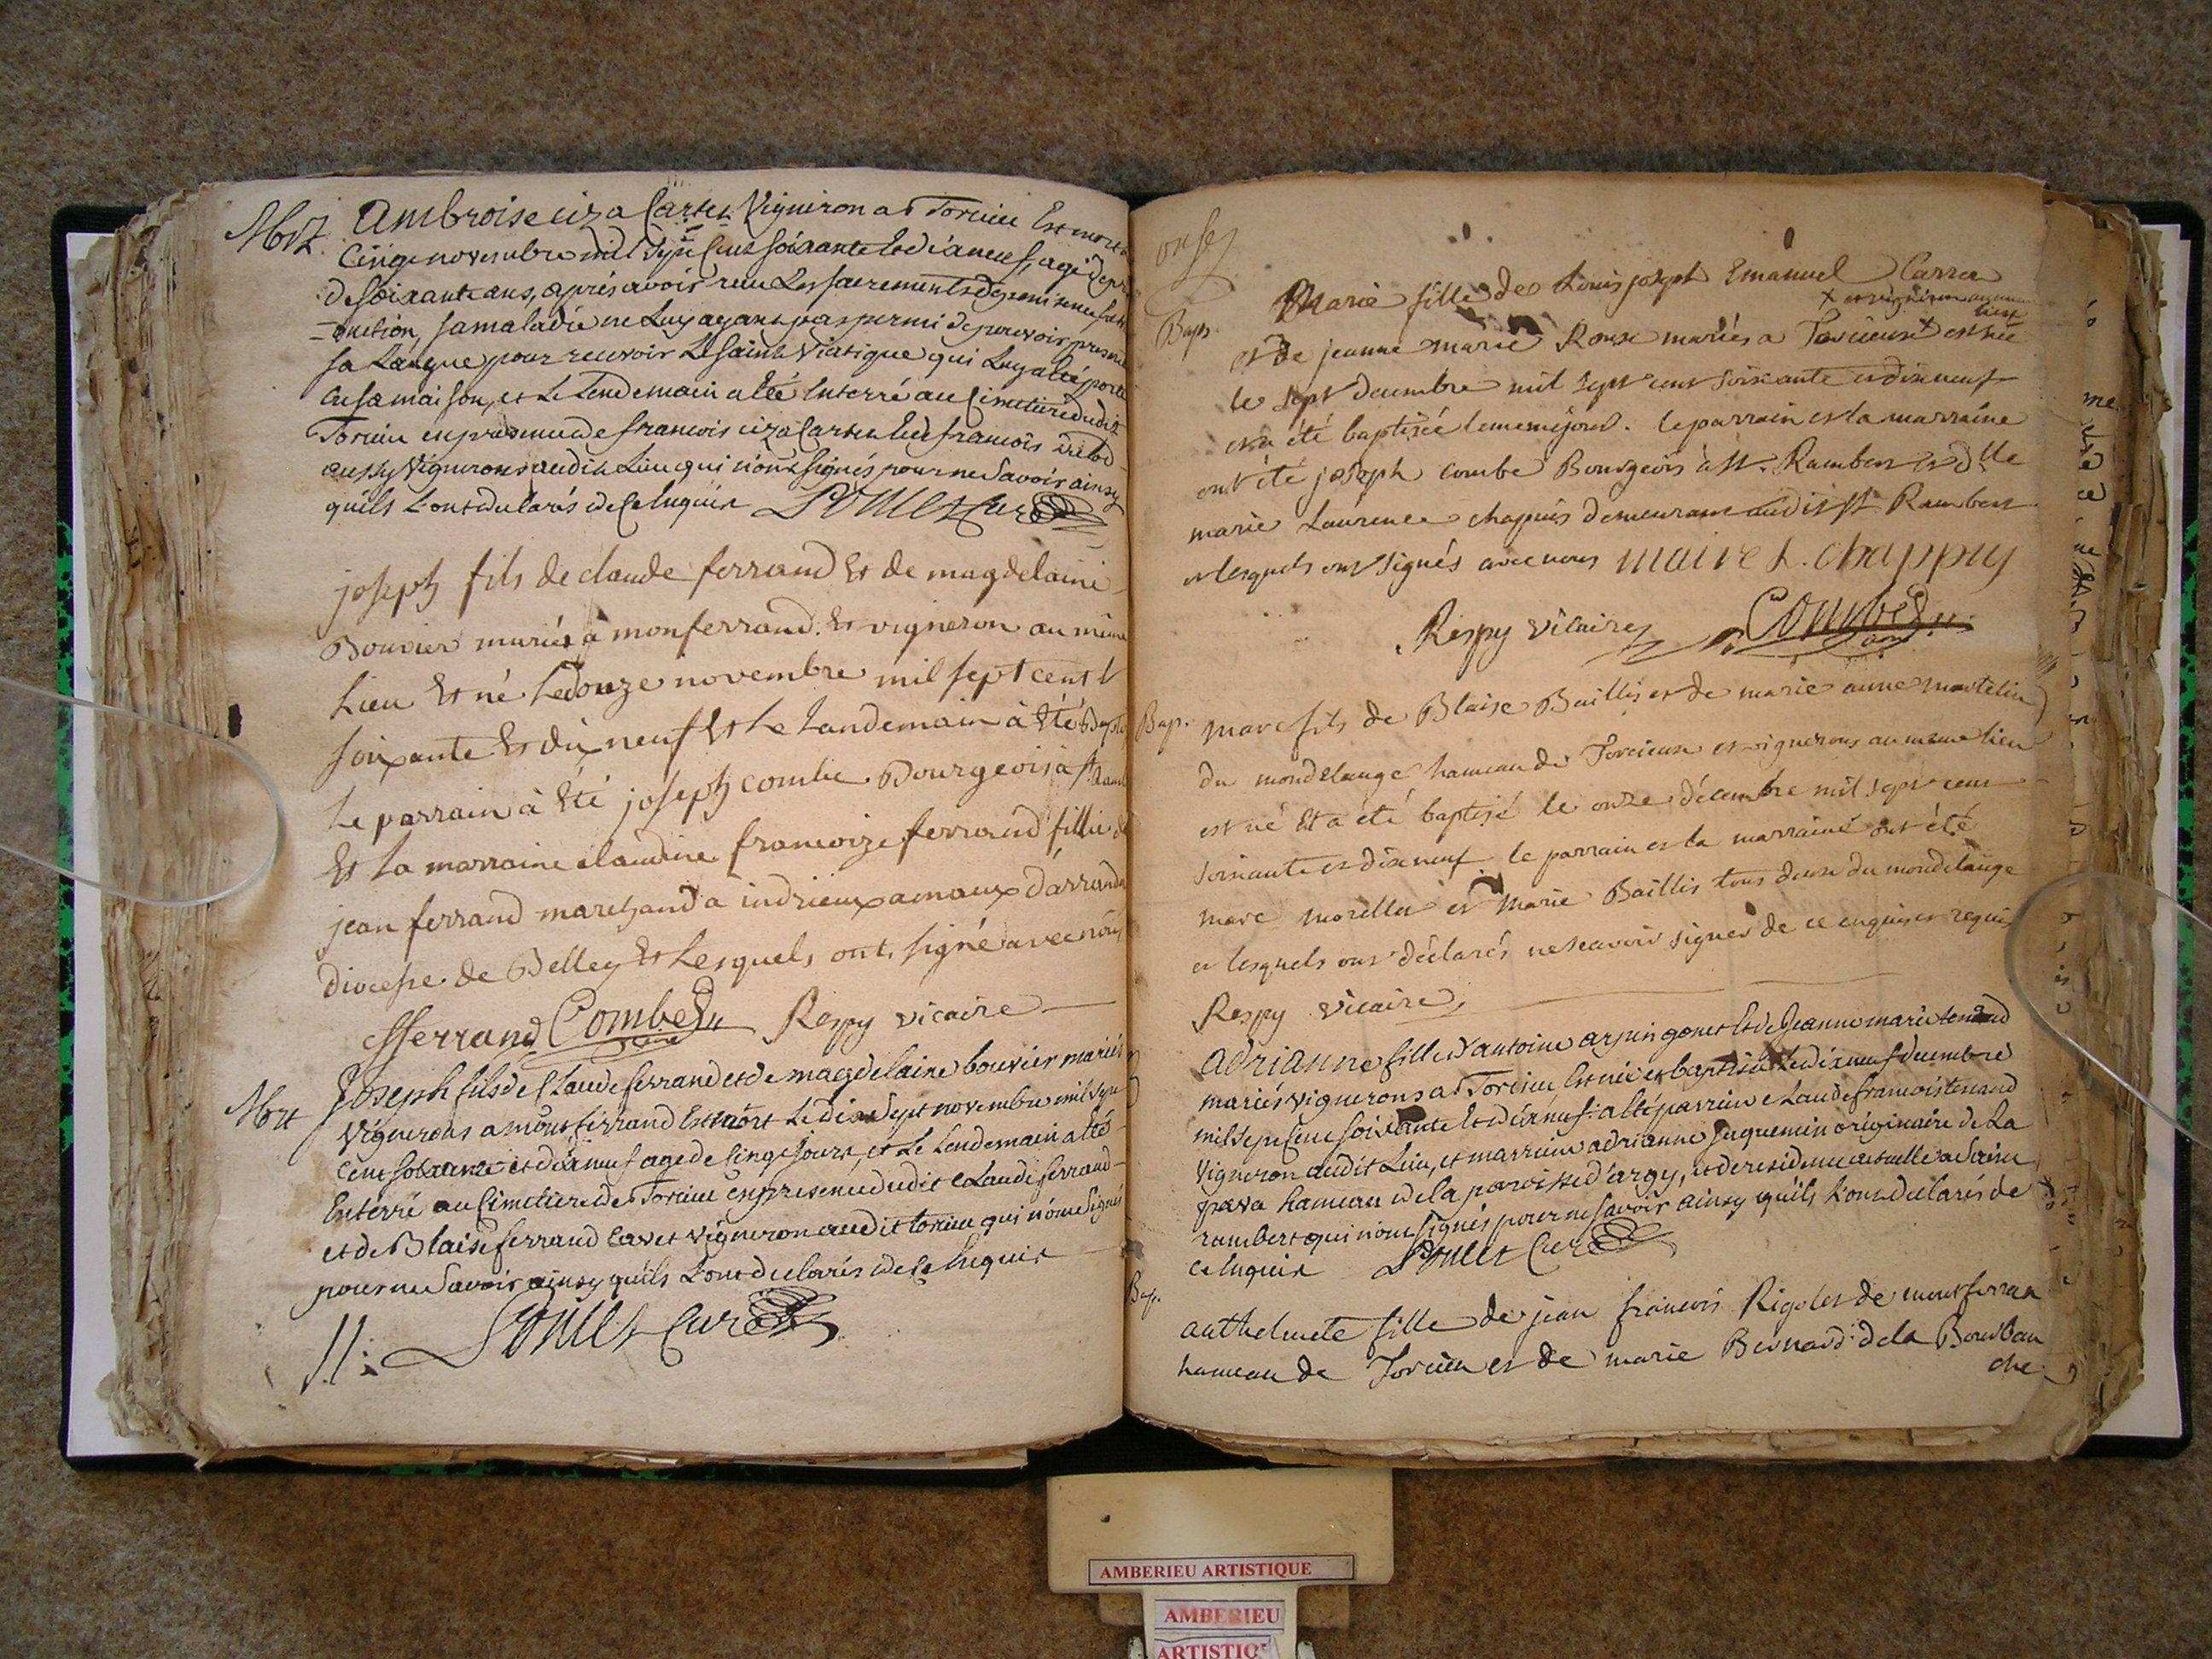 Mort Ambroise ciza Cartet Vigniron a Torcieu Est mort le
Cinqe novembre mil sept Cent soixante et dixneuf, agé de
de soixante ans, aprés avoir reçu Les sacrements de penitence
-onction, sa maladie ne Luy ayant pas permi de pouvoir
sa Langue pour recevoir Le saint Viatique qui Luy a été porté
en sa maison, et Le Lendemain a été Enterré au Cimetiere dudit
Torcieu en presence de francois ciza Cartet et de francois
aussy Vignerons audit Lieu qui n'ont signés pour ne savoir ainsy
quils L'ont declarés de Ce Enquis Curé
joseph fils de claude ferrand Et de magdelaine
Bouvier mariés à monferrand. Et vigneron au même
Lieu Et né Le douze novembre mil sept cent
soixante Et dix neuf Et Le Landemain à Eté
Le parrain à Eté joseph combe Bourgeois à st
Et La marraine claudine francoize ferrand fillie de
jean ferrand marchand à indrieux
diocese de Belley Et Lesquels ont signé avec nous
fferrand Combe Respy vicaire
Mort Joseph fils de Claude ferrand et de magdelaine bouvier mariés
Vignerons a mont ferrand Est mort Le dix sept novembre mil sept
Cent soixante et dixneuf agé de Cinqe Jours, et Le Lendemain a été
Enterré au Cimetiere de Torcieu en presence dudit Claude ferrand
et de Blaise ferrand Cavet Vigneron audit torcieu qui n'ont signés
pour ne savoir ainsy quils L'ont declarés de Ce Enquis
Curé
onse
Marie fille de Louis joseph Emanuel Carrer
Bapt. et de jeanne marie Roux mariés a Torcieux + est née
+ et vigneron au meme lieu
le sept decembre mil sept cent soixante et dix neuf
et a été baptisée le meme jour. le parrain et la marraine
ont été joseph combe Bourgeois à st. Rambert et dlle
marie Laurence chapuis demeurant audit st Rambert
et lesquels ont signés avec nous maire L. chappuy
Respy vicaire Combe
Bap. marc fils de Blaise Baillis et de marie anne martelin
du mondelange hameau de Torcieux et vignerons au meme lieu
est né Et a été baptisé le onze décembre mil sept cent
soixante et dix neuf le parrain et la marraine ont été
marc morellet et Marie Baillis tous deux du mondelange
et lesquels ont déclarés ne scavoir signer de ce enquis et requis
Respy vicaire
Adrianne fille d'antoine arpin gonet et de Jeanne marie tenand
mariés vignerons a Torcieu Est née et baptisée Le dixneuf decembre
mil sept Cent soixante et dixneuf: a été parrain Claude francois tenand
Vigneron audit Lieu, et marraine adrianne Juquemin originaire de La
pava hameau de la paroisse d'argy, et de residence actuelle a saint
rambert qui n'ont signés pour ne savoir ainsy quils L'ont declarés de
Ce Enquis Curé
Bap.
anthelmete fille de jean francois Rigolet de montferran
hameau de Torcieu et de marie Bernard de la Bourban
che
AMBERIEU ARTISTIQUE
AMBERIEU
ARTISTIQ